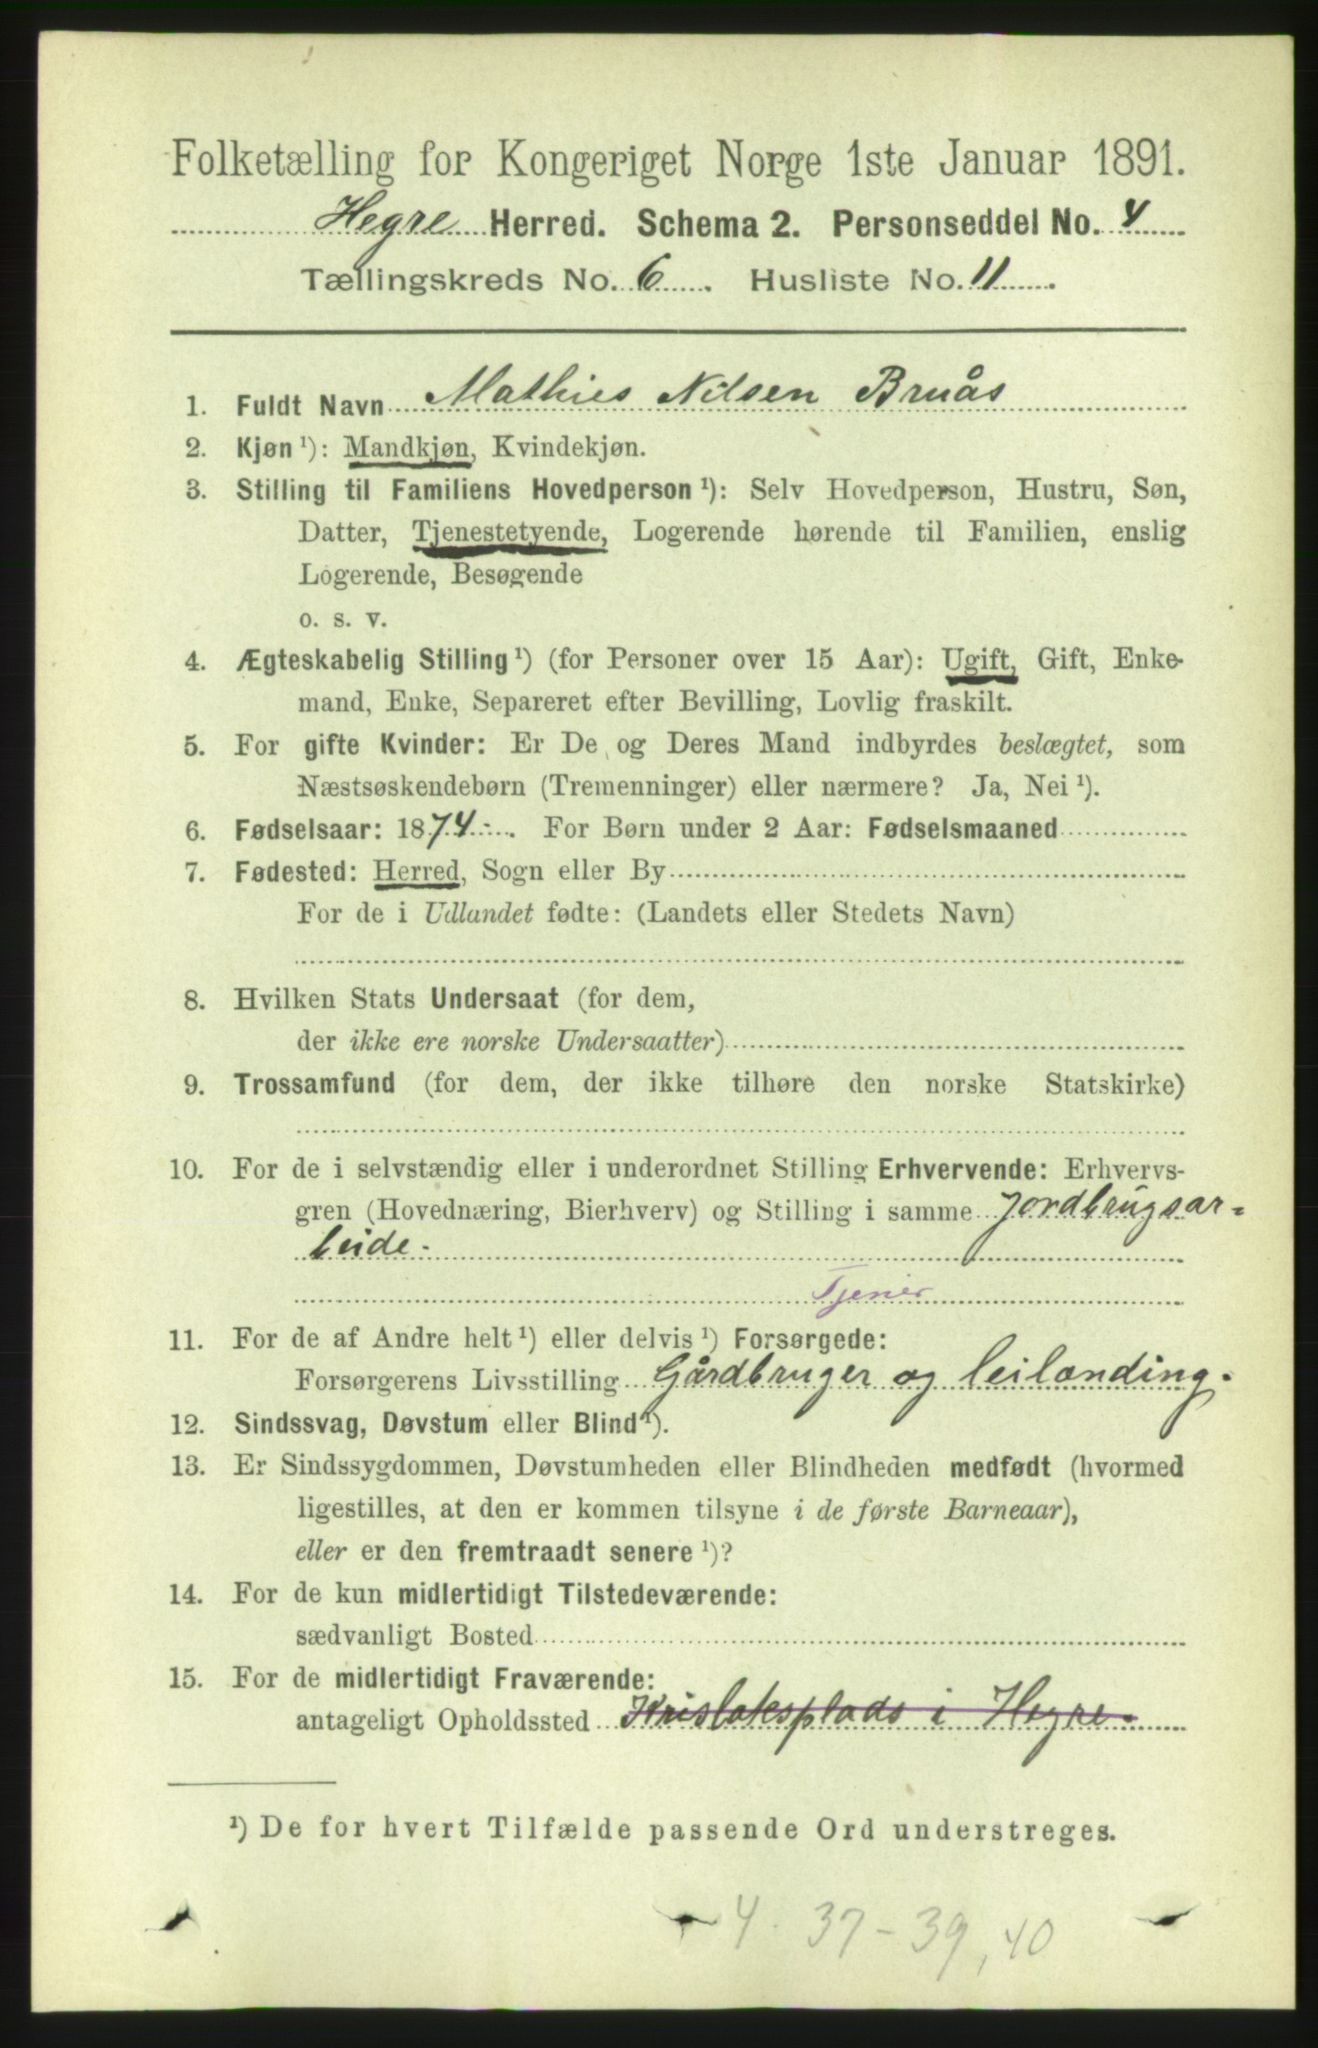 Folketælling for Kongeriget Norge 1ste Januar 1891.
Hegre Herred. Schema 2. Personseddel No. 4
Tællingskreds No. 6. Husliste No. 11.
1. Fuldt Navn Mathies Nilsen Bruås
2. Kjøn ¹): Mandkjøn, Kvindekjøn.
3. Stilling til Familiens Hovedperson ¹): Selv Hovedperson, Hustru, Søn,
Datter, Tjenestetyende, Logerende hørende til Familien, enslig
Logerende, Besøgende
o. s. v.
4. Ægteskabelig Stilling ¹) (for Personer over 15 Aar): Ugift, Gift, Enke-
mand, Enke, Separeret efter Bevilling, Lovlig fraskilt.
5. For gifte Kvinder: Er De og Deres Mand indbyrdes beslægtet, som
Næstsøskendebørn (Tremenninger) eller nærmere? Ja, Nei ¹).
6. Fødselsaar: 1874. For Børn under 2 Aar: Fødselsmaaned
7. Fødested: Herred, Sogn eller By
For de i Udlandet fødte: (Landets eller Stedets Navn)
8. Hvilken Stats Undersaat (for dem,
der ikke ere norske Undersaatter)
9. Trossamfund (for dem, der ikke tilhøre den norske Statskirke)
10. For de i selvstændig eller i underordnet Stilling Erhvervende: Erhvervs-
gren (Hovednæring, Bierhverv) og Stilling i samme Jordbrugsar-
beide.
Tjener
11. For de af Andre helt ¹) eller delvis ¹) Forsørgede:
Forsørgerens Livsstilling Gårdbruger og leilænding.
12. Sindssvag, Døvstum eller Blind ¹).
13. Er Sindssygdommen, Døvstumheden eller Blindheden medfødt (hvormed
ligestilles, at den er kommen tilsyne i de første Barneaar),
eller er den fremtraadt senere ¹)?
14. For de kun midlertidigt Tilstedeværende:
sædvanligt Bosted
15. For de midlertidigt Fraværende:
antageligt Opholdssted i Hegre
¹) De for hvert Tilfælde passende Ord understreges.
4. 37-39, 40